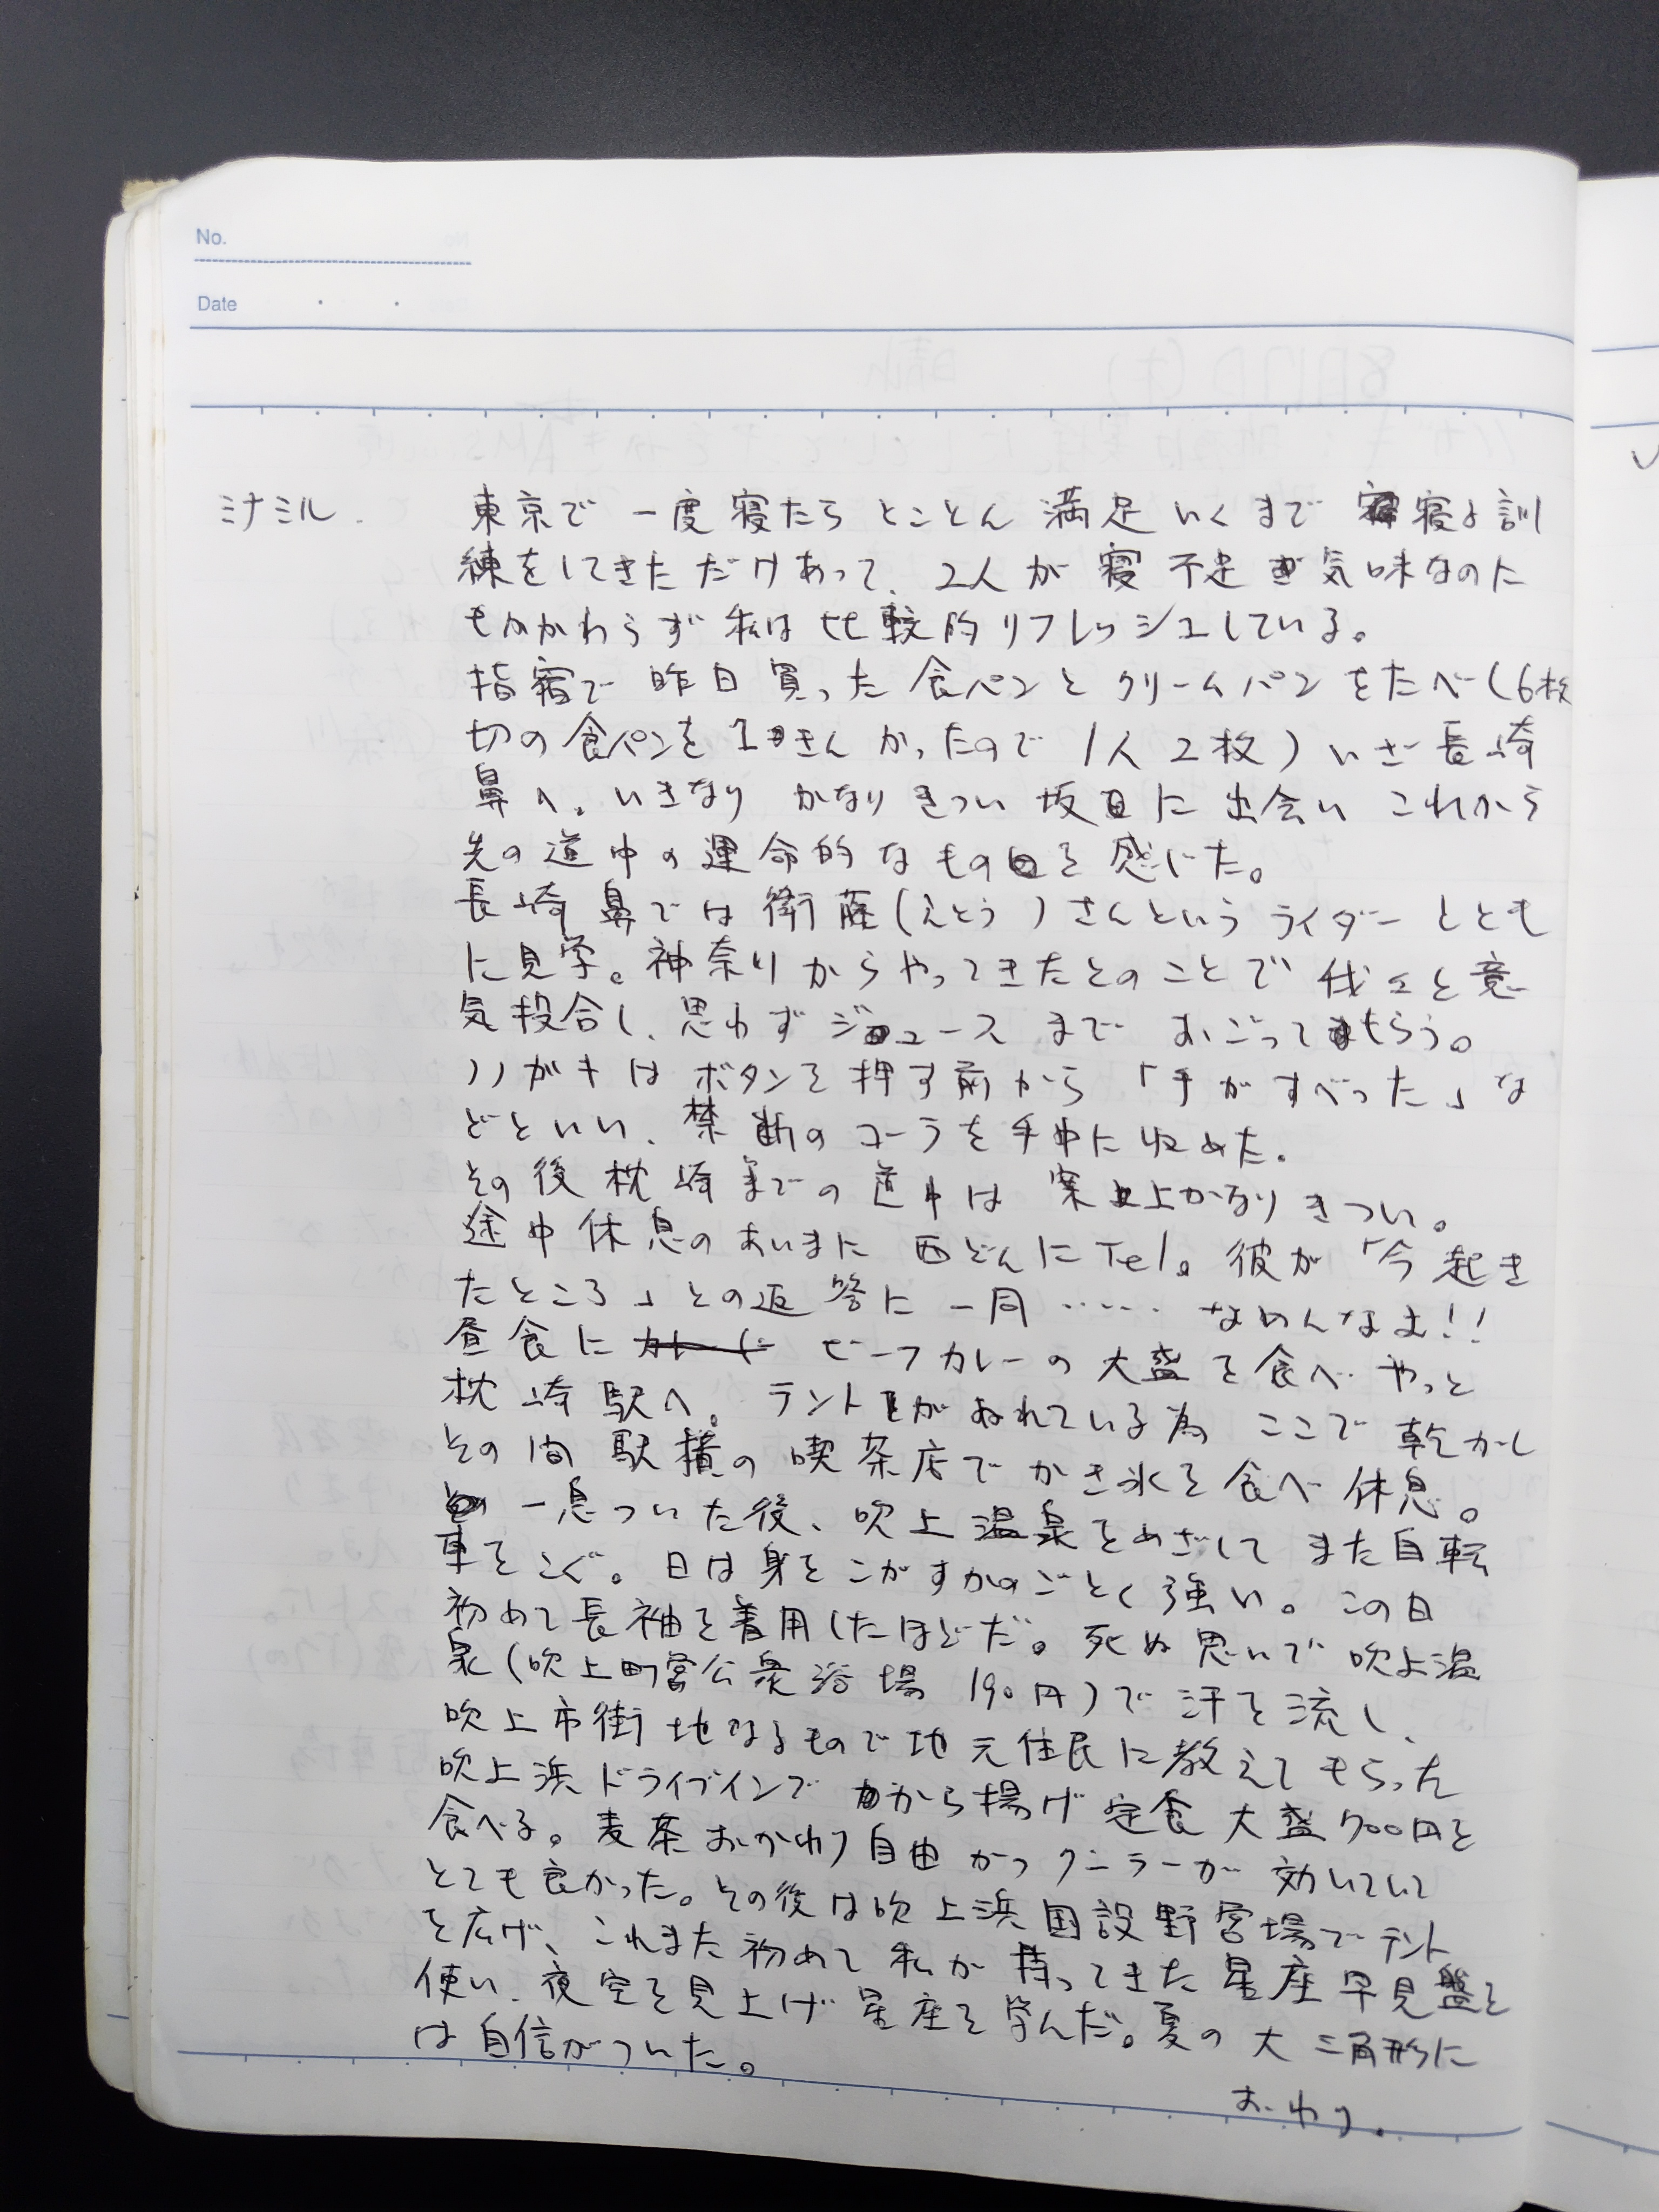 No.
Date
ミナミル.
東京で一度寝たら とことん 満足いくまで 寝る訓
練をしてきただけあって、2人が寝不足気味なのに
もかかわらず私は比較的リフレッシュしている。
指宿で昨日買った食パンとクリームパンをたべ(6枚
切の食パンを1きんかったので1人2枚)いざ長崎
鼻へ。いきなり かなりきつい坂に出会い これから
先の道中の運命的なものを感じた。
長崎鼻では衛藤(えとう)さんというライダーととも
に見学。神奈川からやってきたとのことで我々と意
気投合し、思わずジュースまでおごってもらう。
ハガキはボタンを押す前から「手がすべった」な
どといい、禁断のコーラを手中に収めた。
その後枕崎までの道中は実上かなりきつい。
途中休息のあいまに西どんにTel。彼が「今起き
たところ」との返答に一同……なめんなよ!!
昼食に ビーフカレーの大盛を食べ やっと
枕崎駅へ。テントがぬれている為 ここで乾かし
その間駅横の喫茶店でかき氷を食べ休息。
一息ついた後、吹上温泉をめざしてまた自転
車をこぐ。日は身をこがすかのごとく強い。この日
初めて長袖を着用したほどだ。死ぬ思いで吹上温
泉(吹上町営公衆浴場 190円)で汗を流し、
吹上市街地なるもので地元住民に教えてもらった
吹上浜ドライブインで から揚げ定食大盛700円を
食べる。麦茶おかわり自由かつクーラーが効いていて
とても良かった。その後は吹上浜国設野営場でテント
を広げ、これまた初めて私が持ってきた星座早見盤を
使い、夜空を見上げ星座を学んだ。夏の大三角形に
は自信がついた。
おわり.